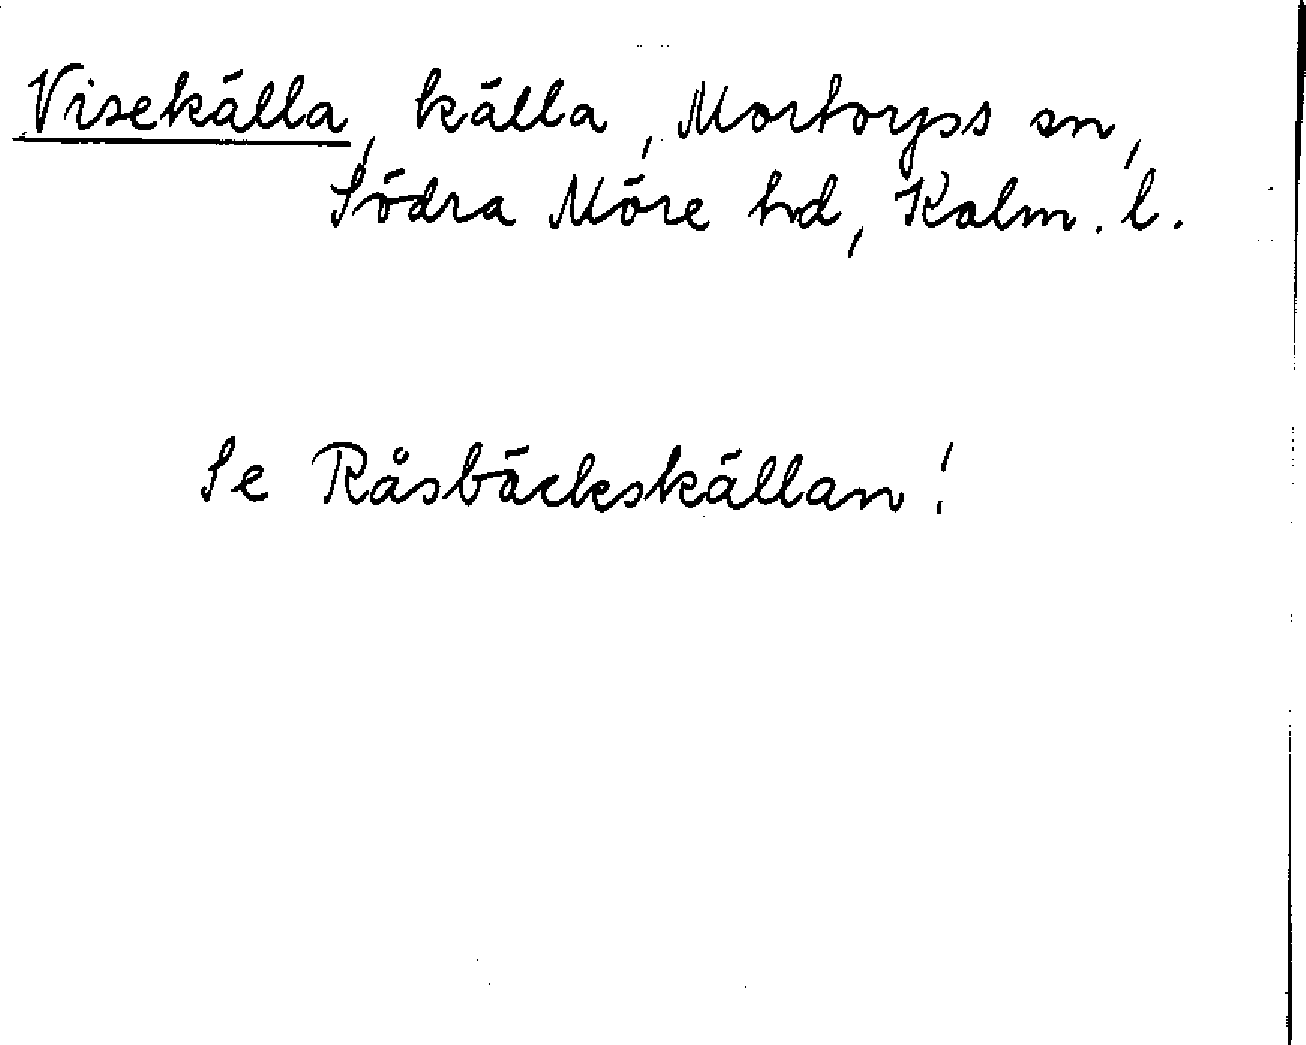 Visekälla, källa, Mortorps sn,
Södra Möre hd, Kalm. l.
Se Råsbäckskällan!